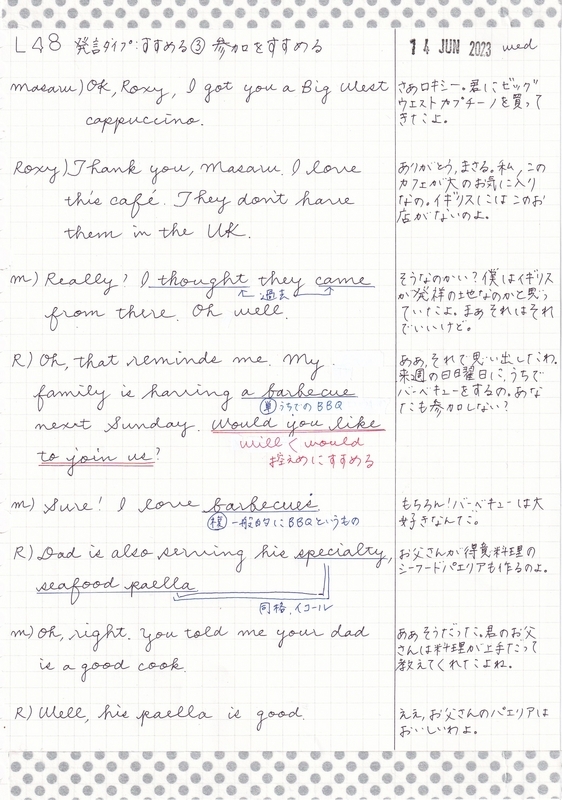 L48 発言タイプ:すすめる③ 参加をすすめる
14 JUN 2023 wed
Masaru) Ok, Roxy, I got you a Big West
cappuccino.
さあロキシー。君にビッグ
ウエストカプチーノを買って
きたよ。
Roxy) Thank you, Masaru. I love
this café. They don't have
them in the UK.
ありがとう, まさる。私, この
カフェが大のお気に入り
なの。イギリスにはこのお
店がないのよ。
m) Really? I thought they came
過去
from there. Oh well.
そうなのかい? 僕はイギリス
が発祥の地なのかと思っ
ていたよ。まぁそれはそれ
でいいけど。
R) Oh, that reminds me. My
family is having a barbecue
単 うちでのBBQ
next Sunday. Would you like
will < would
to join us?
控えめにすすめる
ああ, それで思い出したわ。
来週の日曜日に, うちで
バーベキューをするの。あな
たも参加しない?
m) Sure! I love barbecues
複 一般的にBBQというもの
もちろん! バーベキューは大
好きなんだ。
R) Dad is also serving his specialty,
seafood paella
同格, イコール
お父さんが得意料理の
シーフードパエリアも作るのよ。
m) Oh, right. You told me your dad
is a good cook.
ああそうだった。君のお父
さんは料理が上手だって
教えてくれたよね。
R) Well, his paella is good.
ええ, お父さんのパエリアは
おいしいわよ。